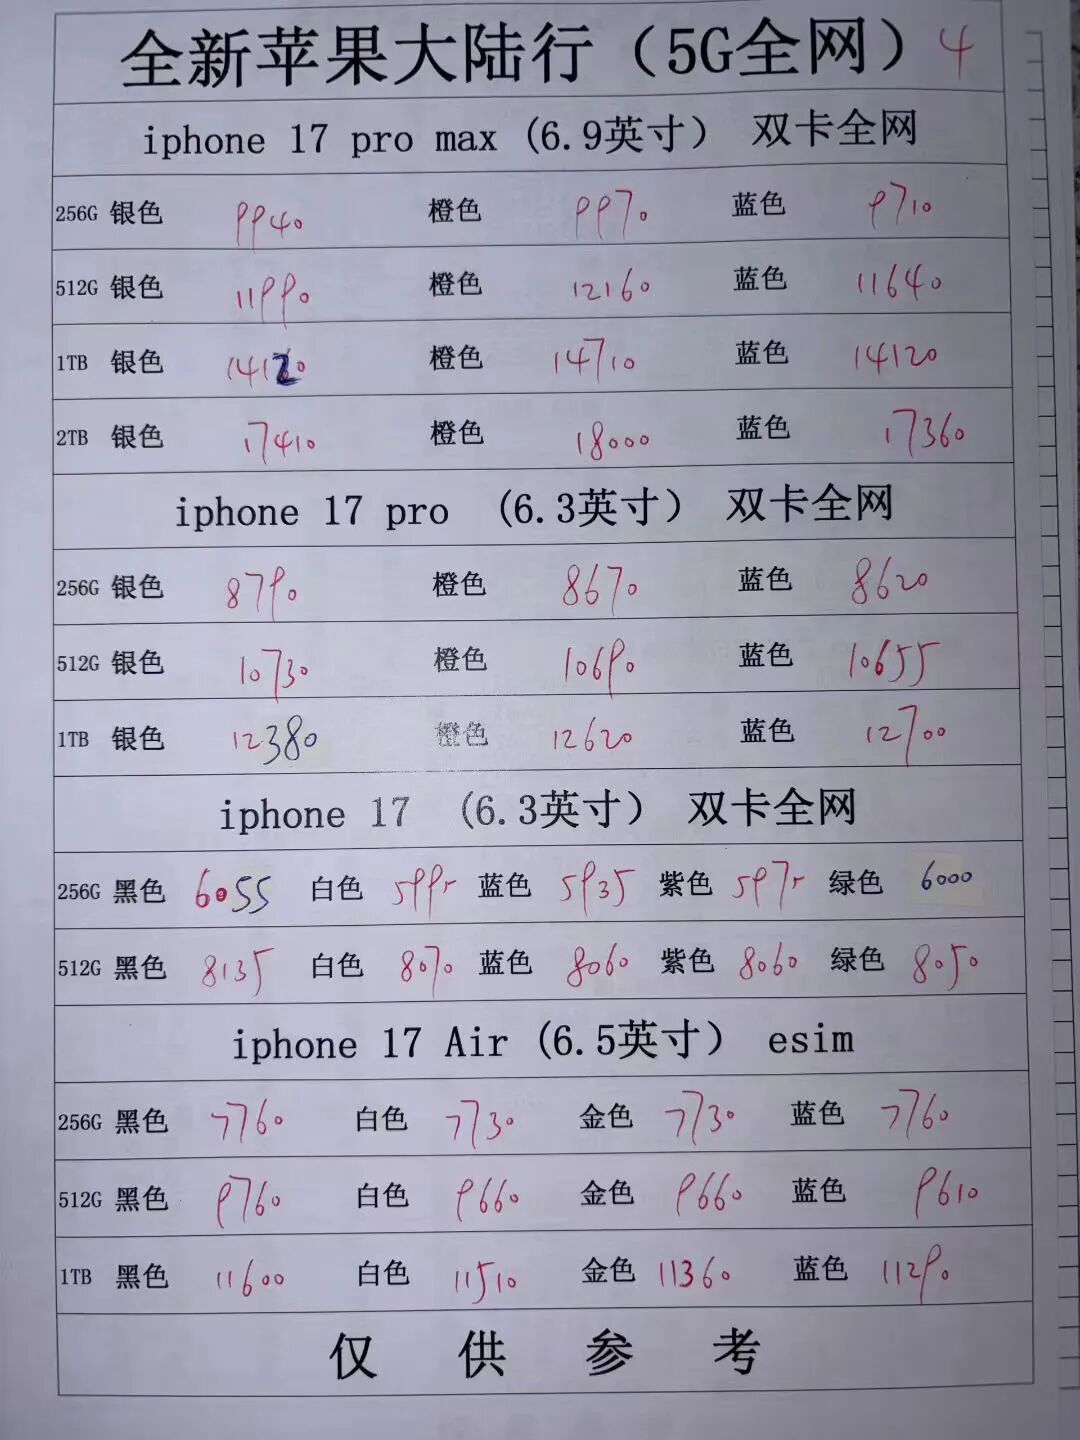 全新苹果大陆行（5G全网） 4
iphone 17 pro max (6.9英寸） 双卡全网
256G 银色 9940 橙色 9970 蓝色 9710
512G 银色 11990 橙色 12160 蓝色 11640
1TB 银色 14120 橙色 14710 蓝色 14120
2TB 银色 17410 橙色 18000 蓝色 17360
iphone 17 pro (6.3英寸） 双卡全网
256G 银色 8790 橙色 8670 蓝色 8620
512G 银色 10730 橙色 10690 蓝色 10655
1TB 银色 12380 橙色 12620 蓝色 12700
iphone 17 (6.3英寸） 双卡全网
256G 黑色 6055 白色 5995 蓝色 5935 紫色 5975 绿色 6000
512G 黑色 8135 白色 8070 蓝色 8060 紫色 8060 绿色 8050
iphone 17 Air (6.5英寸） esim
256G 黑色 7760 白色 7730 金色 7730 蓝色 7760
512G 黑色 9760 白色 9660 金色 9660 蓝色 9610
1TB 黑色 11600 白色 11510 金色 11360 蓝色 11290
仅供参考